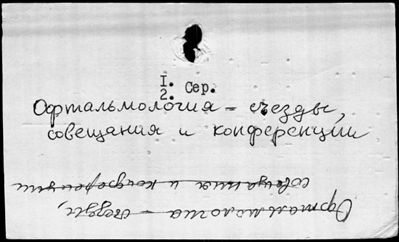 1.
2. Сер.
Офтальмология – съезды,
совещания и конференции
Офтальмология – съезды,
совещания и конференции